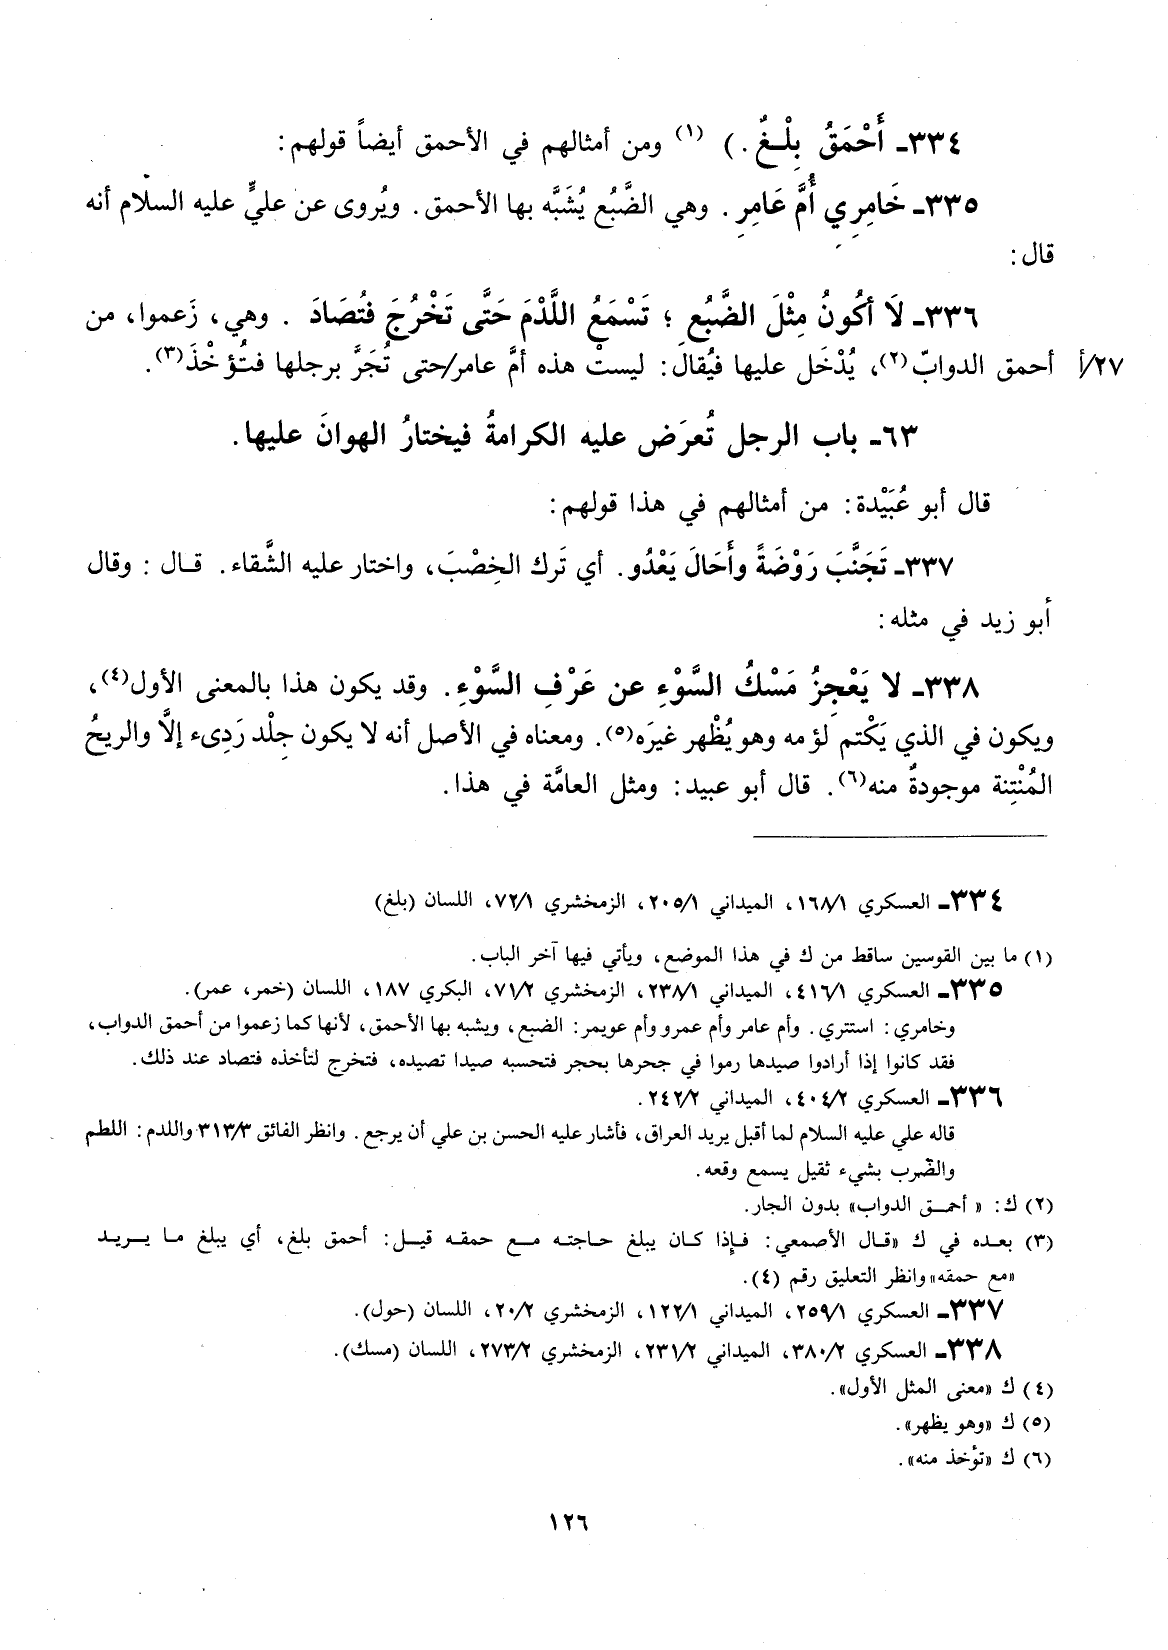 ٣٣٤ـ أَحْمَقُ بِلْـغٌ . ) (١) ومن أمثالهم في الأحمق أيضاً قولهم:
٣٣٥ـ خَامِرِي أُمَّ عَامِرِ . وهي الضَّبُع يُشَبَّه بها الأحمق. ويُروى عن عليٍّ عليه السلام أنه
قال:
٣٣٦ـ لاَ أَكُونُ مِثْلَ الضَّبُعِ ؛ تَسْمَعُ اللَّدْمَ حَتَّى تَخْرُجَ فَتُصَادَ . وهي، زَعموا، من
٢٧/أ أحمق الدوابّ(٢)، يُدْخَل عليها فيُقال: ليستْ هذه أمَّ عامر/حتى تُجَرَّ برجلها فتُؤخْذَ(٣).
٦٣ـ باب الرجل تُعرَض عليه الكرامةُ فيختارُ الهوانَ عليها.
قال أبو عُبَيْدة: من أمثالهم في هذا قولهم:
٣٣٧ـ تَجَنَّبَ رَوْضَةً وأَحَالَ يَعْدُو. أي تَرك الخِصْبَ، واختار عليه الشَّقاء. قـال : وقال
أبو زيد في مثله:
٣٣٨ـ لا يَعْجِزُ مَسْكُ السَّوْءِ عن عَرْفِ السَّوْءِ. وقد يكون هذا بالمعنى الأول(٤)،
ويكون في الذي يَكْتم لؤمه وهو يُظْهر غيرَه(٥). ومعناه في الأصل أنه لا يكون جِلْد رَدِىء إلَّا والريحُ
المُنْتِنة موجودةٌ منه(٦). قال أبو عبيد: ومثل العامَّة في هذا.
٣٣٤ـ العسكري ١٦٨/١، الميداني ٢٠٥/١، الزمخشري ٧٢/١، اللسان (بلغ)
(١) ما بين القوسين ساقط من ك في هذا الموضع، ويأتي فيها آخر الباب.
٣٣٥ـ العسكري ٤١٦/١، الميداني ٢٣٨/١، الزمخشري ٧١/٢، البكري ١٨٧، اللسان (خمر، عمر).
وخامري: استتري. وأم عامر وأم عمرو وأم عويمر: الضبع، ويشبه بها الأحمق، لأنها كما زعموا من أحمق الدواب،
فقد كانوا إذا أرادوا صيدها رموا في جحرها بحجر فتحسبه صيدا تصيده، فتخرج لتأخذه فتصاد عند ذلك.
٣٣٦ـ العسكري ٤٠٤/٢، الميداني ٢٤٢/٢.
قاله علي عليه السلام لما أقبل يريد العراق، فأشار عليه الحسن بن علي أن يرجع. وانظر الفائق ٣١٣/٣ واللدم: اللطم
والضّرب بشيء ثقيل يسمع وقعه.
(٢) ك: « أحمـق الدواب» بدون الجار.
(٣) بعـده في ك «قـال الأصمعي: فـإذا كـان يبلغ حـاجتـه مـع حمقـه قيـل: أحمق بلغ، أي يبلغ مـا يـريـد
«مع حمقه» وانظر التعليق رقم (٤).
٣٣٧ـ العسكري ٢٥٩/١، الميداني ١٢٢/١، الزمخشري ٢٠/٢، اللسان (حول).
٣٣٨ـ العسكري ٣٨٠/٢، الميداني ٢٣١/٢، الزمخشري ٢٧٣/٢، اللسان (مسك).
(٤) ك «معنى المثل الأول».
(٥) ك «وهو يظهر».
(٦) ك «تؤخذ منه».
١٢٦